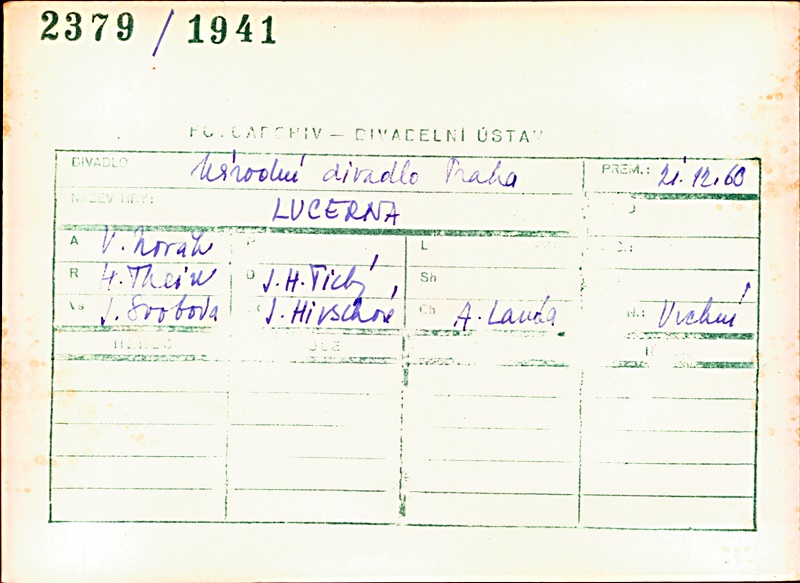 2379 / 1941
FOTOARCHIV — DIVADELNÍ ÚSTAV
DIVADLO Národní divadlo Praha PREM.: 21.12.60
NÁZEV HRY: LUCERNA
A V. Novák L
R H. Thein D J. H. Tichý Sh
Vs J. Svoboda J. Hirschová Ch A. Landa N.: Vrchní
HEREC